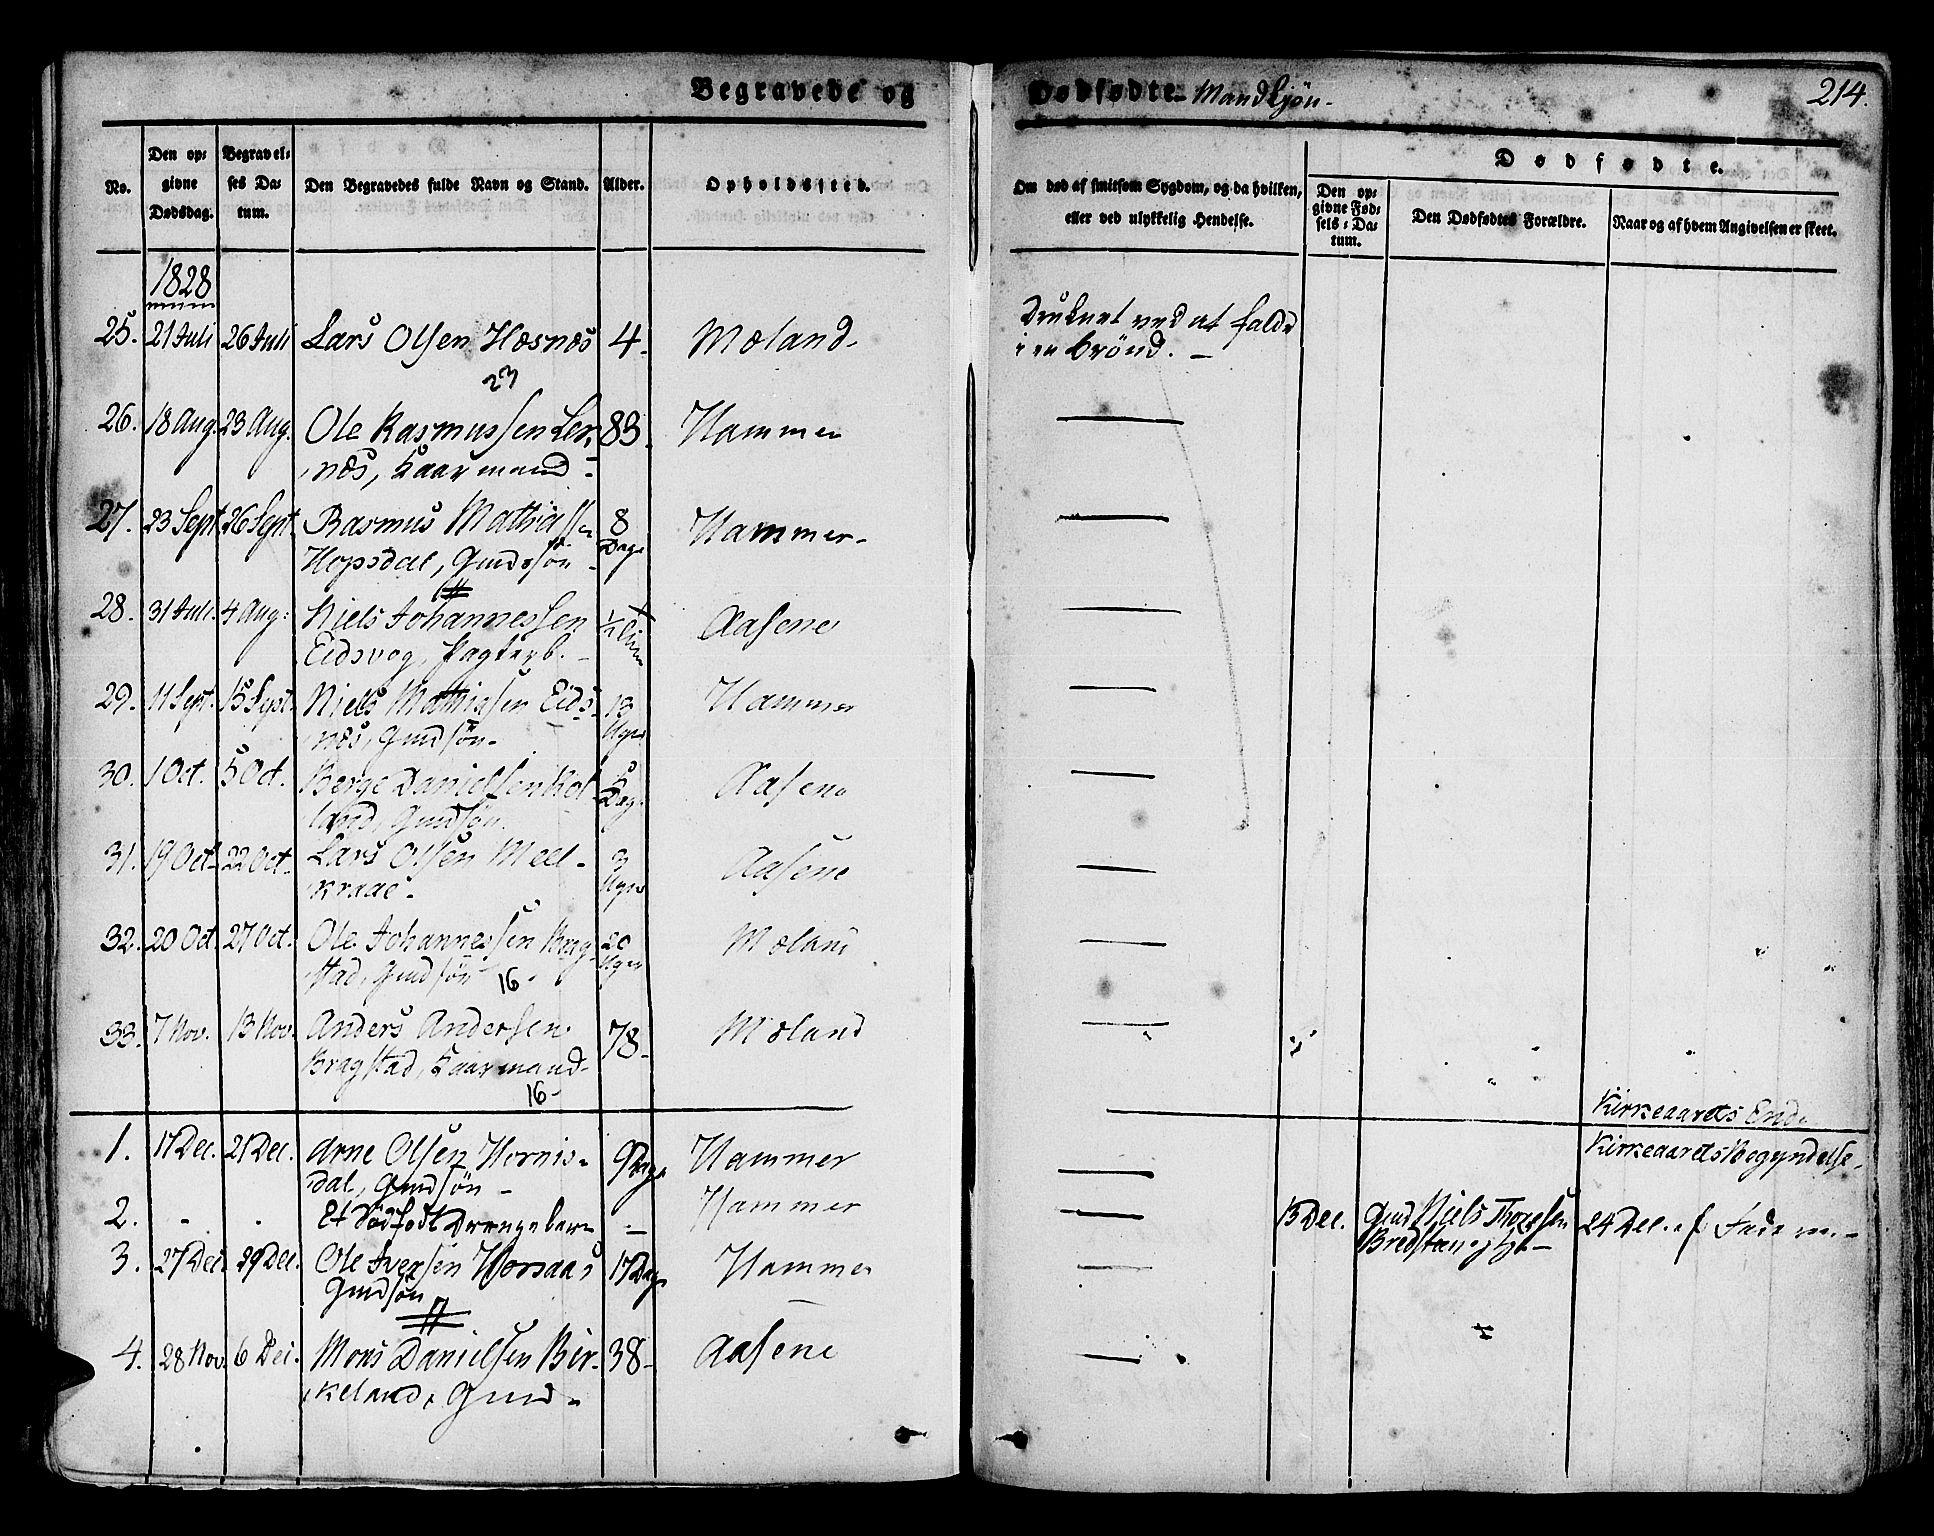 Begravede og Dødfødte. Mandkjøn.
214.
No.
Den opgivne Dødsdag.
Begravelses Datum.
Den Begravedes fulde Navn og Stand.
Alder.
Opholdssted.
Om død af smitsom Sygdom, og da hvilken, eller ved ulykkelig Hendelse.
Dødfødte.
Den opgivne Fødsels-Datum.
Den Dødfødtes Forældre.
Naar og af hvem Angivelsen er skeet.
1828
25. 21 Juli 26 Juli Lars Olsen Hæsnæs 4. Mæland. Druknet ved at falde
23 i en Brønd. —
26. 18 Aug. 23 Aug. Ole Rasmussen Ler- 83. Hammer —
næs, Kaarmand
27. 23 Sept. 26 Sept. Rasmus Mathiassen 8 Hammer. —
Hopsdal, Gmdssøn Dage
28. 31 Juli. 4 Aug: Niels Johannessen 1/2 Aasene —
Eidsvog,
29. 11 Sept. 15 Sept. Niels Mathiassen Eids- 13 Hammer —
næs, Gmdsøn. Uger
30. 1 Oct. 5 Oct. Berge Danielsen Kol- 5 Aasene —
land, Gmdsøn. Dage
31. 19 Oct. 22 Oct. Lars Olsen Mell- 3 Aasene —
kraae. Uger
32. 20 Oct. 27 Oct. Ole Johannessen Brag- 20 Mæland —
stad, Gmdsøn 16. Uger
33. 7 Nov. 13 Nov. Anders Andersen 78. Mæland —
Bragstad, Kaarmand.
16.
Kirkeaarets Ende
Kirkeaarets Begyndelse.
1. 17 Dec. 21 Dec. Arne Olsen Hornis- 9 Dage Hammer —
dal, Gmdsøn —
2. . . Et Dødfødt Drengebarn — Hammer — 13 Dec. Gmd Niels Thorsen 24 Dec. af Faderen. —
Bredstan
3. 27 Dec. 29 Dec. Ole Iversen Horsaas 17 Dage Hammer —
Gmdsøn
4. 28 Nov. 6 Dec. Mons Danielsen Bir- 38. Aasene —
keland, Gmd.